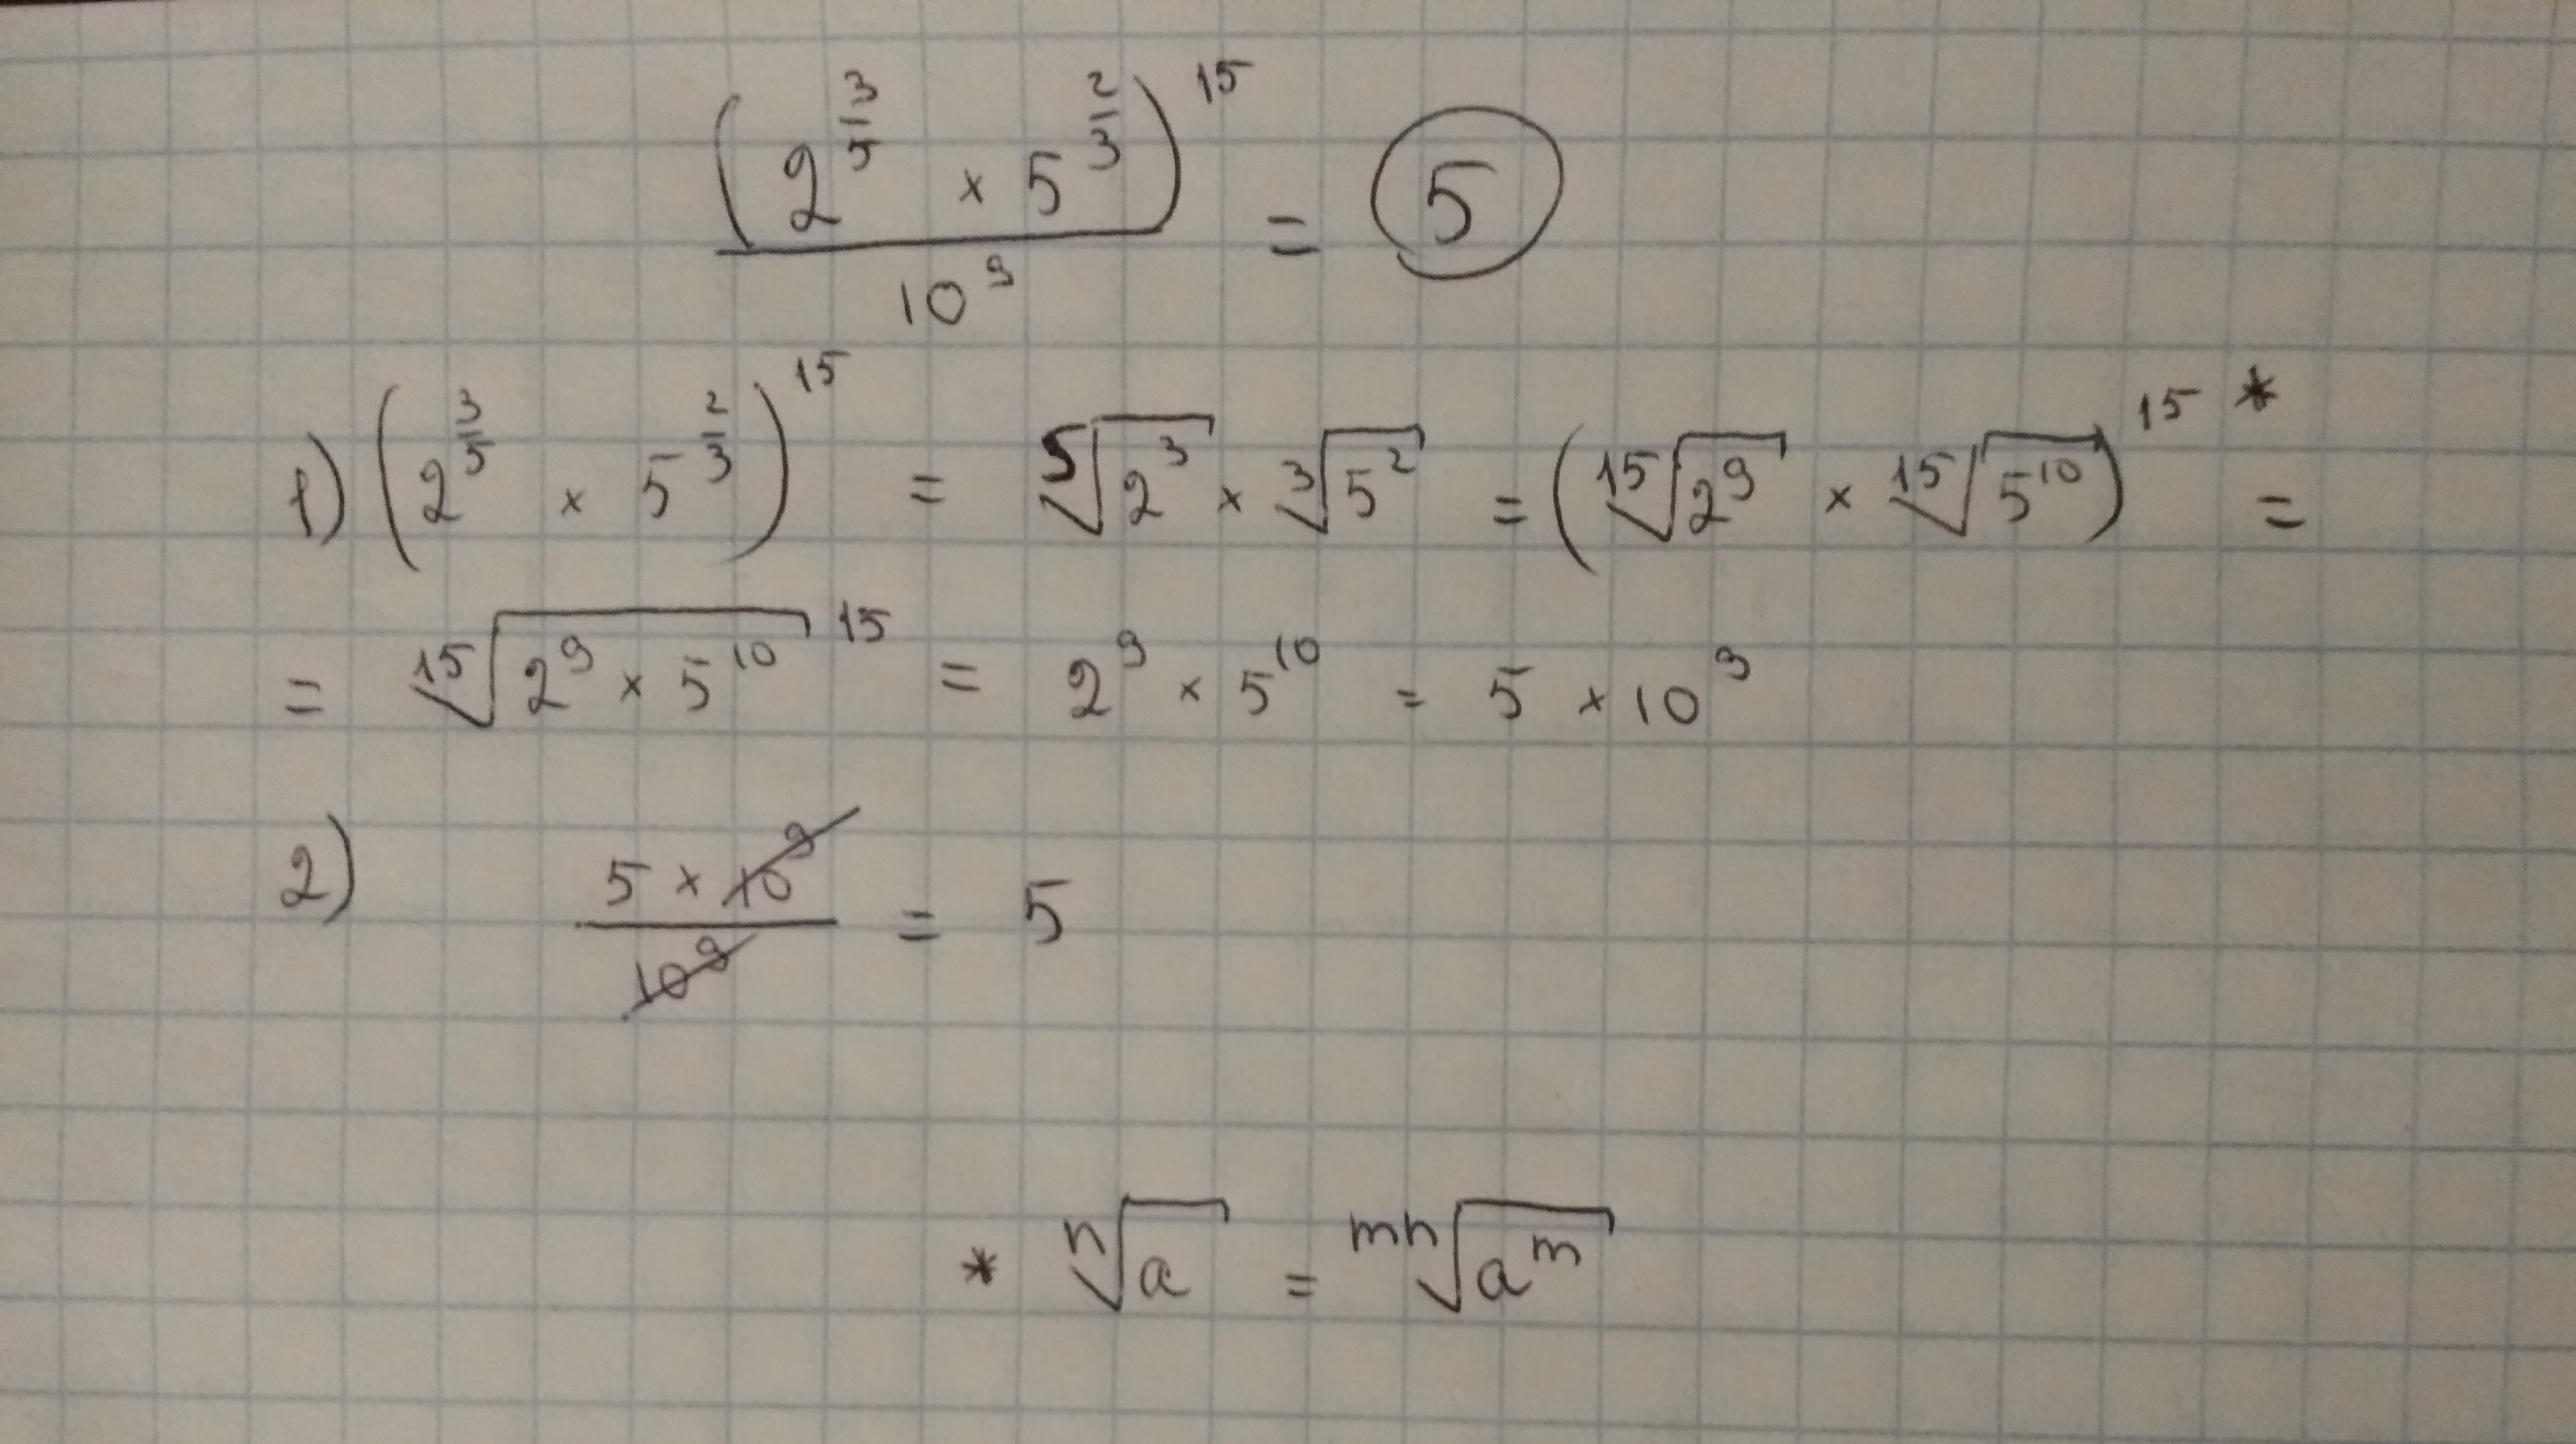 (2^(3/5) × 5^(2/3))^15 / 10^9 = 5
1) (2^(3/5) × 5^(2/3))^15 = ⁵√(2^3) × ³√(5^2) = (¹⁵√(2^9) × ¹⁵√(5^10))^15 * =
= ¹⁵√(2^9 × 5^10)^15 = 2^9 × 5^10 = 5 × 10^9
2) 5 × 10^9 / 10^9 = 5
* ⁿ√a = ᵐⁿ√(a^m)